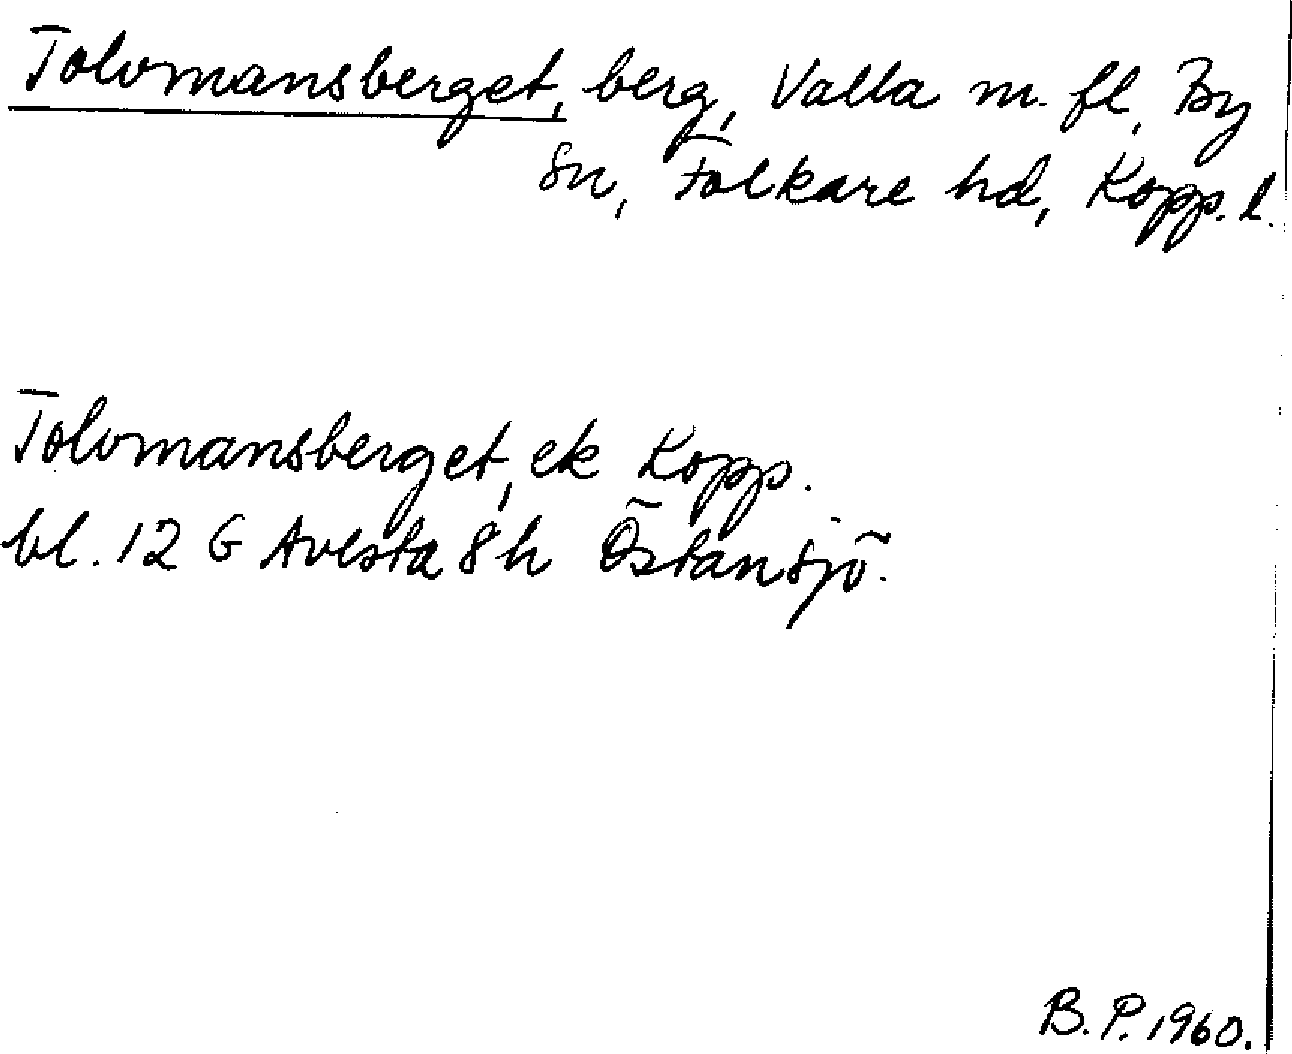 Tolvmansberget, berg, Valla m. fl, By
sn, Folkare hd, Kopp. l.
Tolvmansberget, ek Kopp.
bl. 12 G Avesta 8h Östansjö.
B. P. 1960.